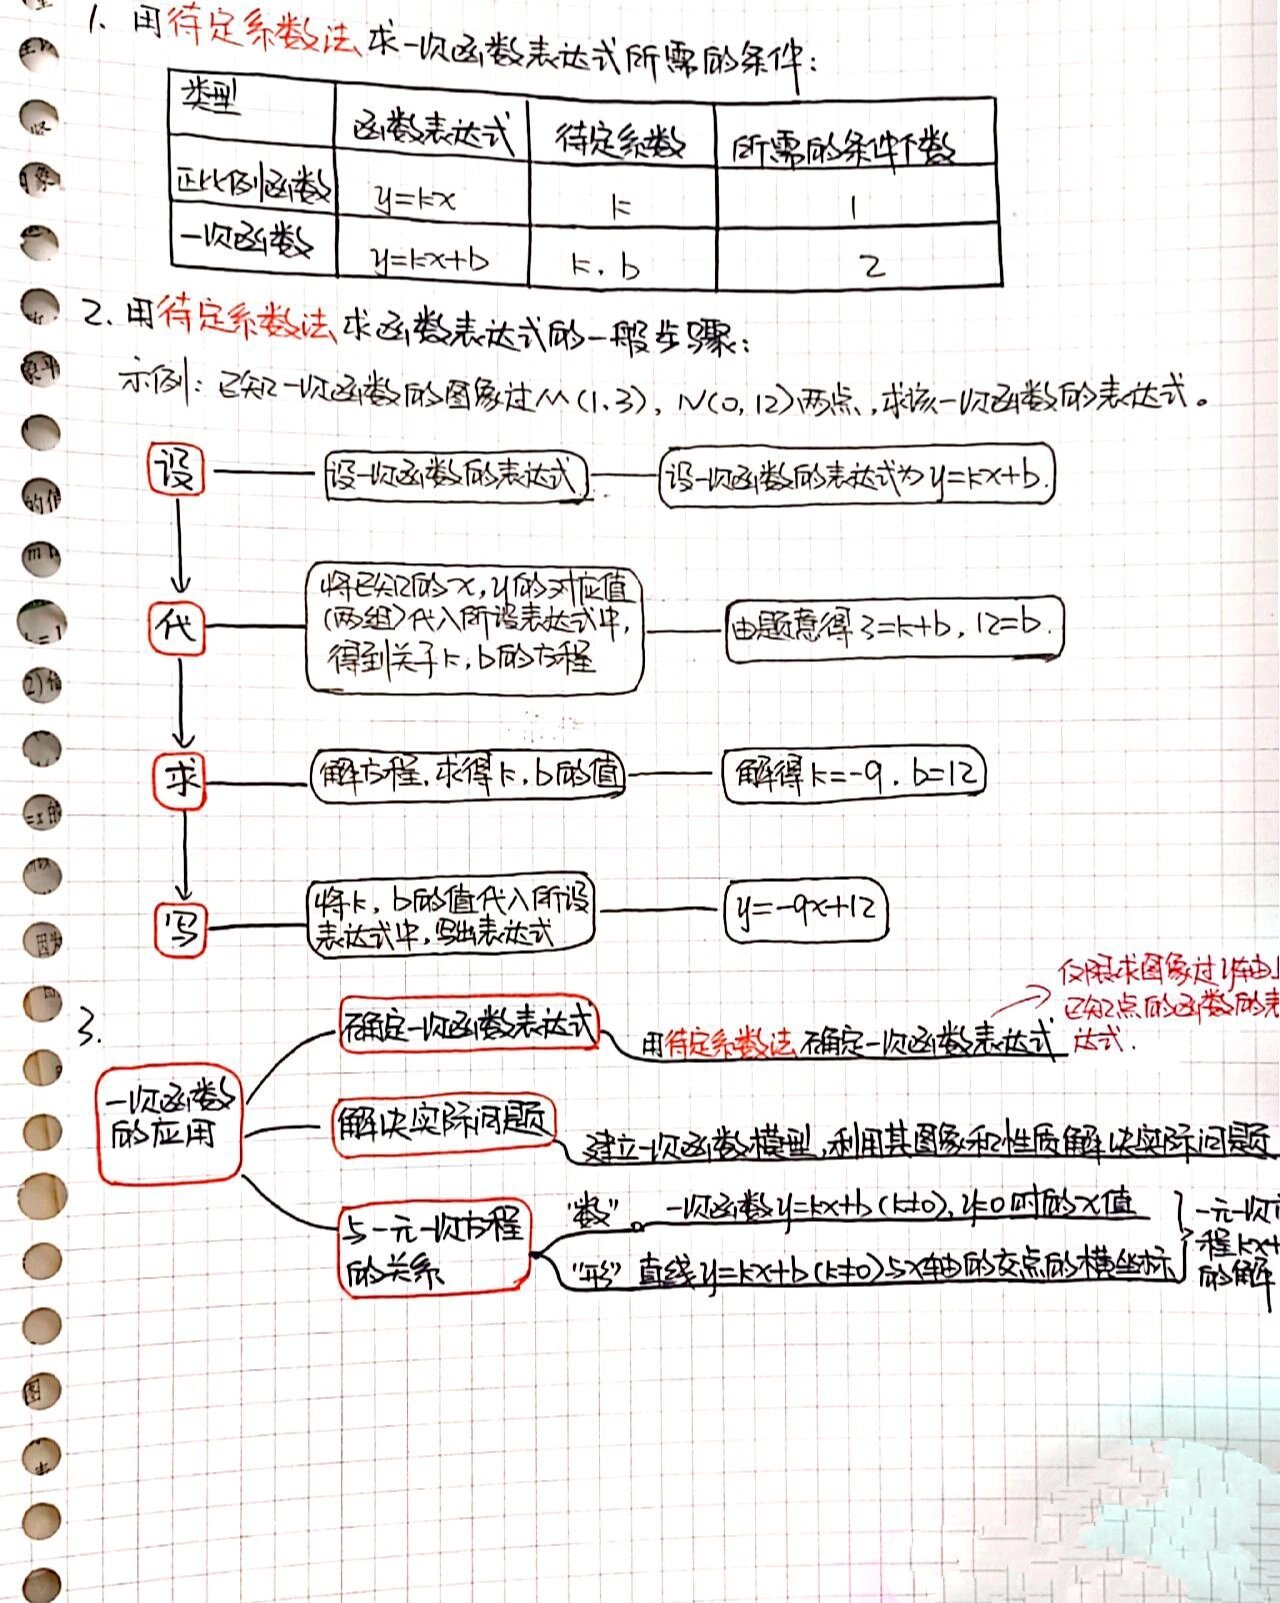 1. 用待定系数法求一次函数表达式所需的条件:
类型 函数表达式 待定系数 所需的条件个数
正比例函数 y=kx k 1
一次函数 y=kx+b k, b 2
2. 用待定系数法求函数表达式的一般步骤:
示例: 已知一次函数的图象过M(1,3), N(0,12)两点,求该一次函数的表达式。
设 设一次函数的表达式 设一次函数的表达式为y=kx+b.
代
将已知的x,y的对应值
(两组)代入所设表达式中,
得到关于k,b的方程
由题意得3=k+b, 12=b.
求 解方程,求得k,b的值 解得k=-9, b=12
写
将k, b的值代入所设
表达式中,写出表达式
y=-9x+12
3.
一次函数
的应用
确定一次函数表达式
用待定系数法确定一次函数表达式
仅限求图象过y轴上
已知点的函数的表
达式.
解决实际问题
建立一次函数模型,利用其图象和性质解决实际问题
与一元一次方程
的关系
"数" 一次函数y=kx+b(k≠0), y=0时的x值
"形" 直线y=kx+b(k≠0)与x轴的交点的横坐标
一元一次方
程kx+
的解